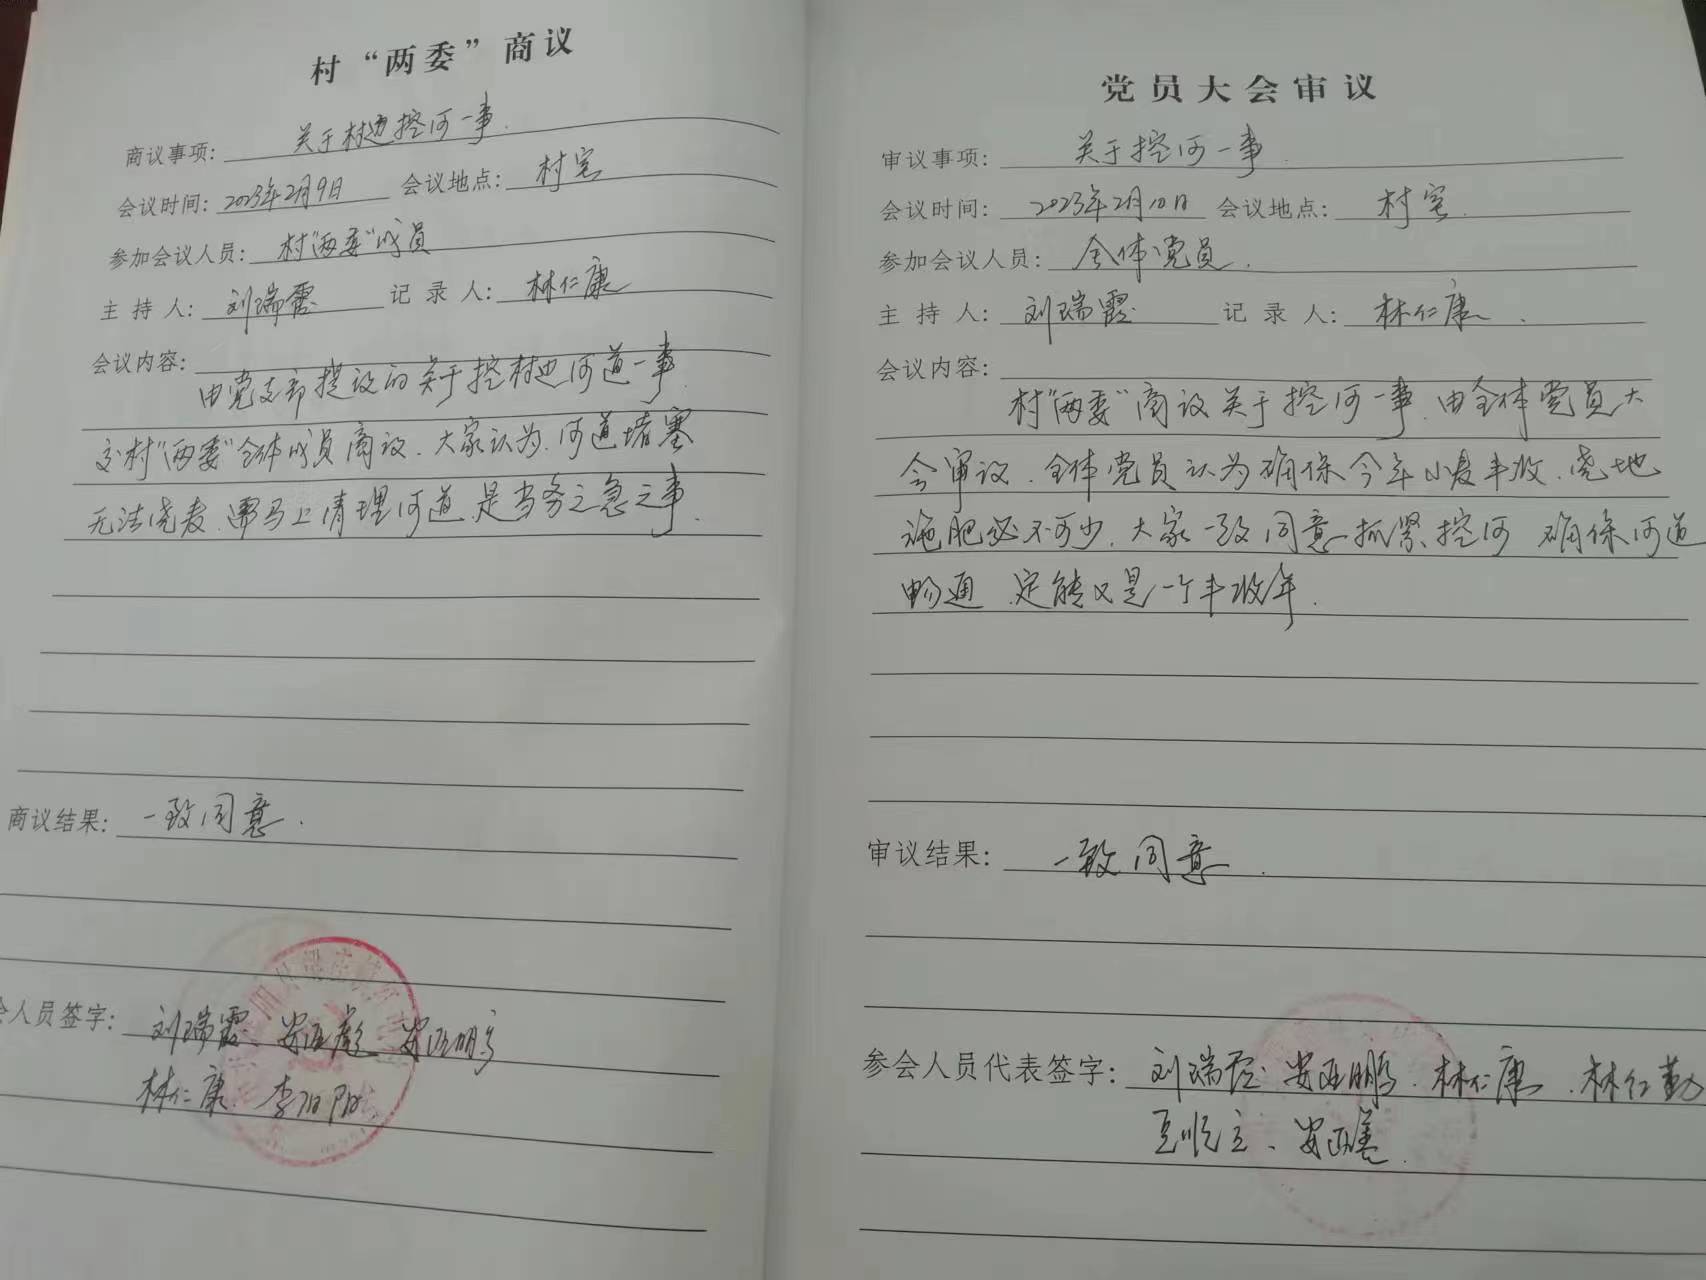 村“两委”商议
商议事项: 关于村边挖河一事.
会议时间: 2023年2月9日 会议地点: 村室
参加会议人员: 村“两委”成员
主 持 人: 刘瑞霞 记 录 人: 林仁康
会议内容:
由党支部提议的关于挖村边河道一事
交村“两委”全体成员商议. 大家认为. 河道堵塞
无法浇麦. 需马上清理河道. 是当务之急之事.
商议结果: 一致同意.
会人员签字: 刘瑞霞 安亚彪 安亚鹏
林仁康. 李阳阳
党员大会审议
审议事项: 关于挖河一事.
会议时间: 2023年2月10日 会议地点: 村室.
参加会议人员: 全体党员.
主 持 人: 刘瑞霞 记 录 人: 林仁康.
会议内容:
村“两委”商议关于挖河一事. 由全体党员大
会审议. 全体党员认为确保今年小麦丰收. 浇地
施肥必不可少. 大家一致同意抓紧挖河 确保河道
畅通 定能又是一个丰收年.
审议结果: 一致同意.
参会人员代表签字: 刘瑞霞. 安亚鹏. 林仁康. 林仁勤
顺立、安亚